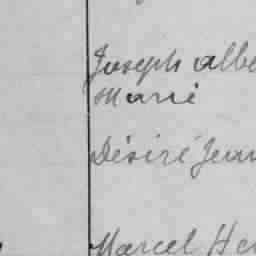 Joseph Albe
Marie
Désiré Jean
Marcel He